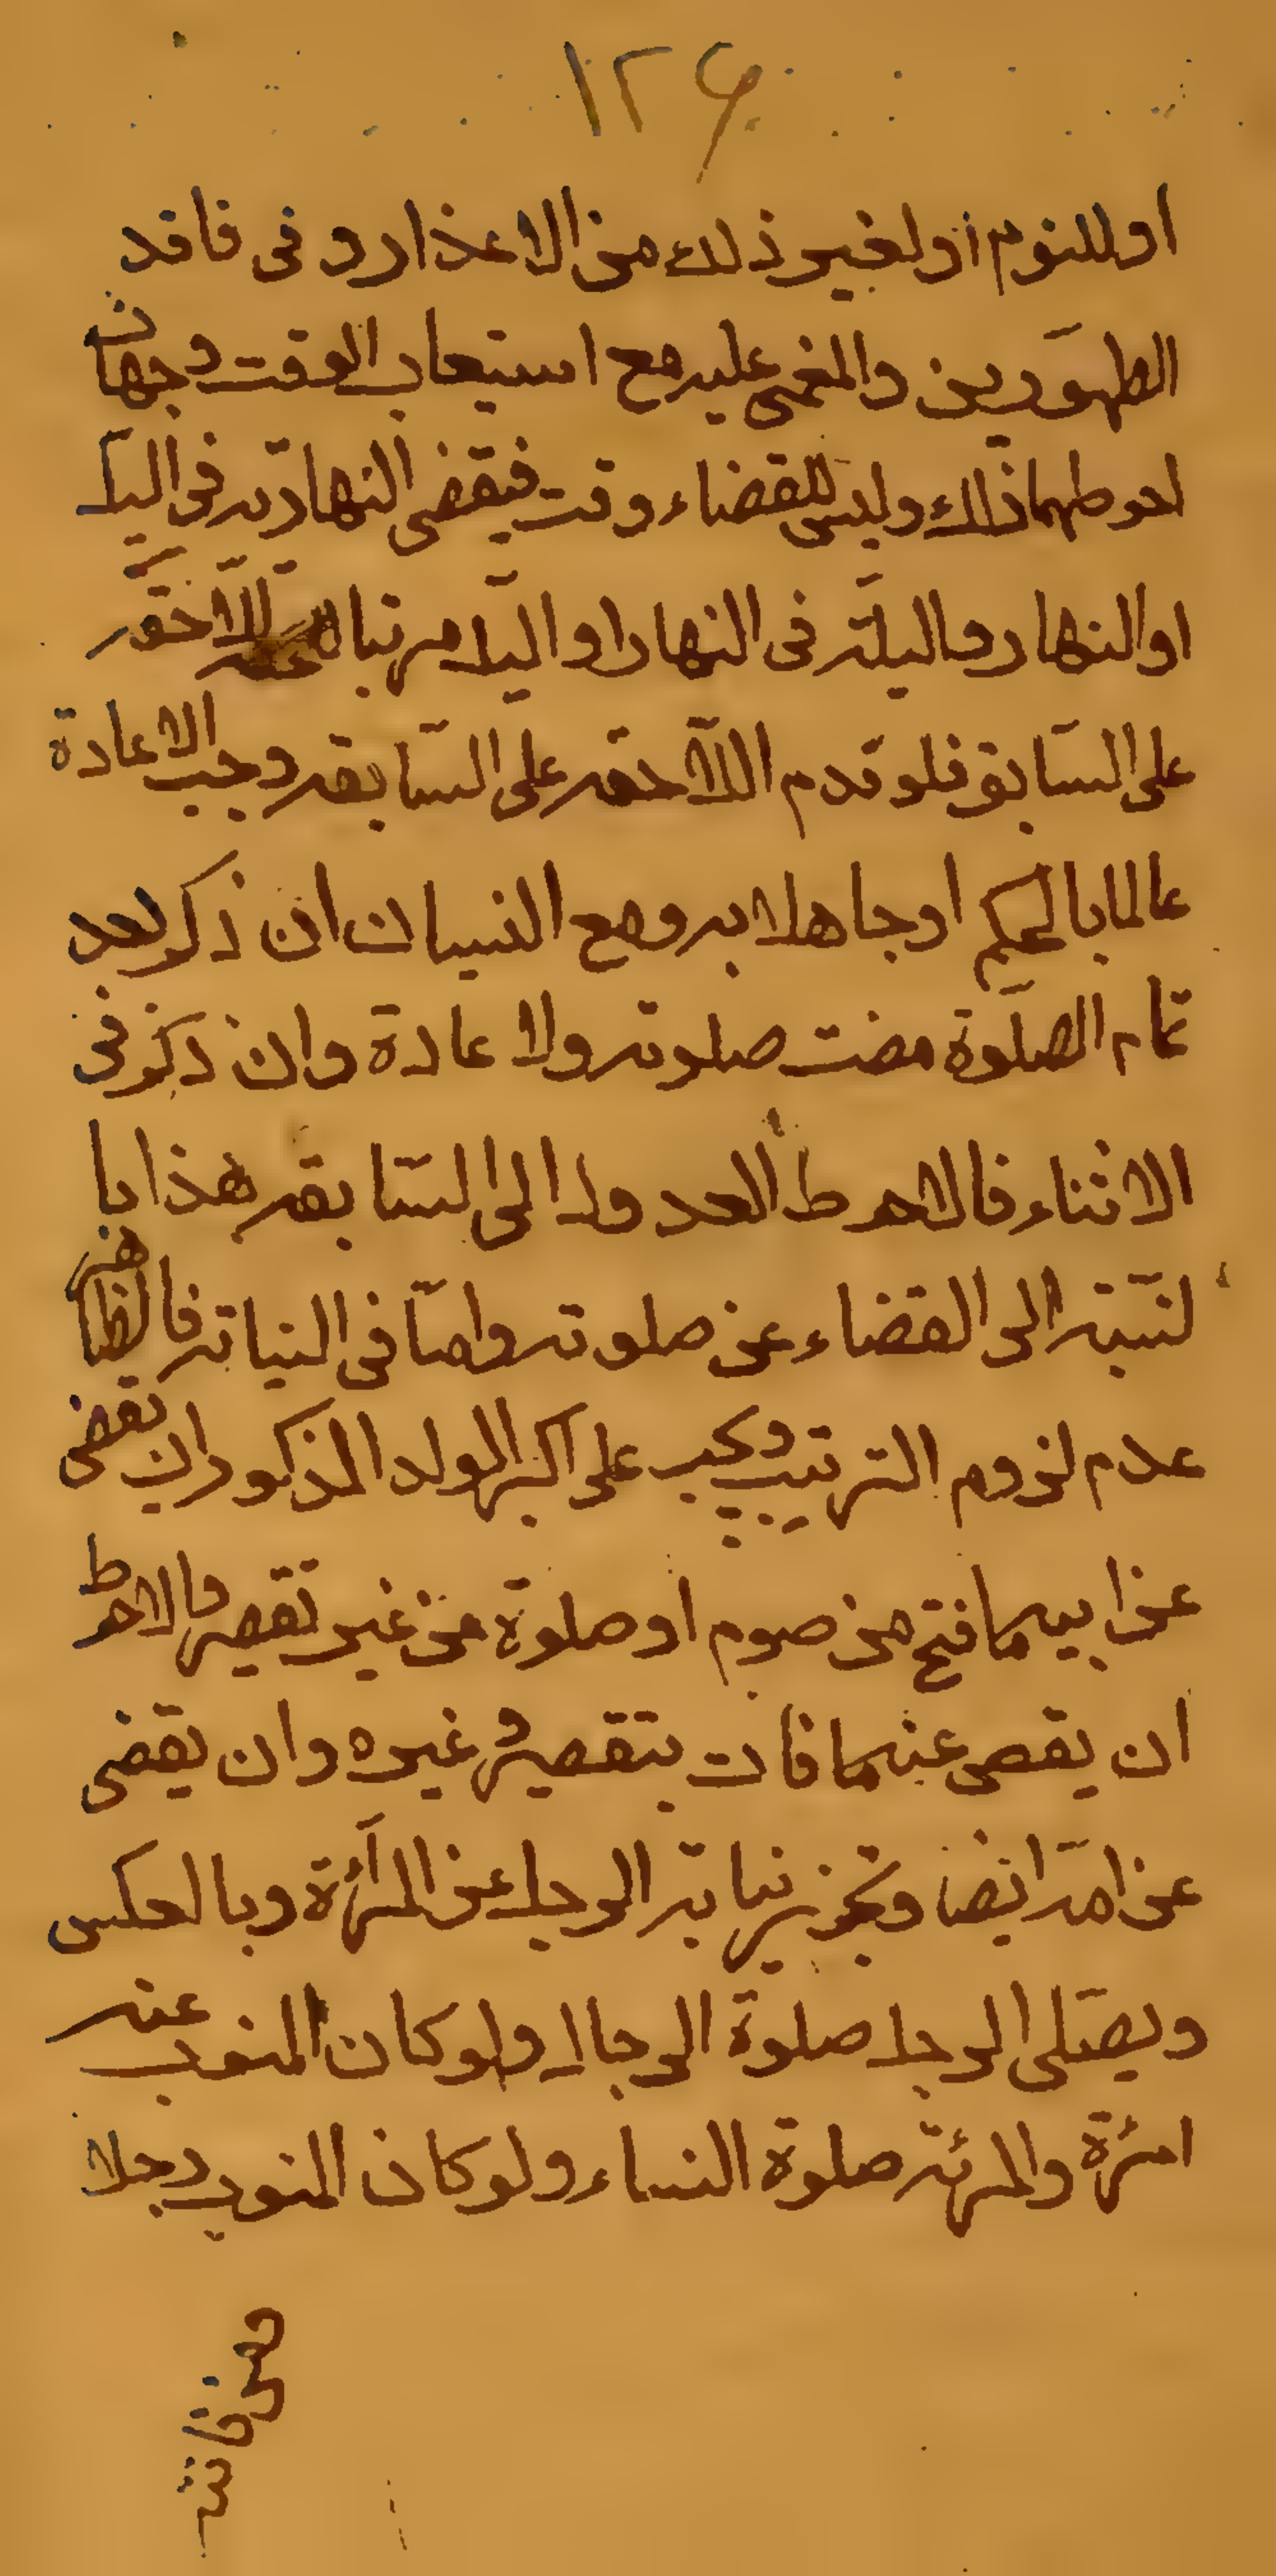 ١٢۶
او للنوم او لغير ذلك من الاعذار و فى فاقد
الطهورين والمغمى عليه مع استيعاب الوقت وجهان
احوطهما ذلك وليس للقضاء وقت فيقضى النهارية فى اليل
او النهار والليلة فى النهار او اليل مرتبا اللاحقه
على السابق فلو قدم اللاحقه على السابقه وجب الاعادة
عالما بالحكم او جاهلا به ومع النسيان ان ذكر بعد
تمام الصلوة مضت صلوته ولا عادة وان ذكر فى
الاثناء فالاحوط العدول الى السابقه هذا با
لنسبة الى القضاء عن صلوته واما فى النيابة فالظاهر
عدم لزوم الترتيب ويجب على اكبر الولد الذكور ان يقضى
عن ابيه ما فتح من صوم او صلوة من غير تقصير والاحوط
ان يقصى عنه ما فات بتقصير و غيره وان يقضى
عن امه ايضا وتجزى نيابة الرجل عن المرأة وبالعكس
ويصلى الرجل صلوة الرجال ولو كان المنوب عنه
امرئة والمرئة صلوة النساء ولو كان المنوب رجلا
ومن فاتته